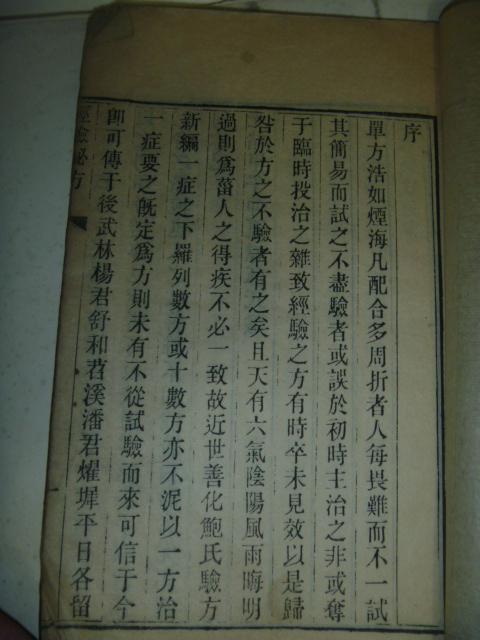 序
單方浩如煙海凡配合多周折者人每畏難而不一試
其簡易而試之不盡驗者或誤於初時主治之非或奪
于臨時投治之雜致經驗之方有時卒未見效以是歸
咎於方之不驗者有之矣且天有六氣陰陽風雨晦明
過則爲菑人之得疾不必一致故近世善化鮑氏驗方
新編一症之下羅列數方或十數方亦不泥以一方治
一症要之旣定爲方則未有不從試驗而來可信于今
卽可傳于後武林楊君舒和苕溪潘君燿墀平日各留
經驗祕方